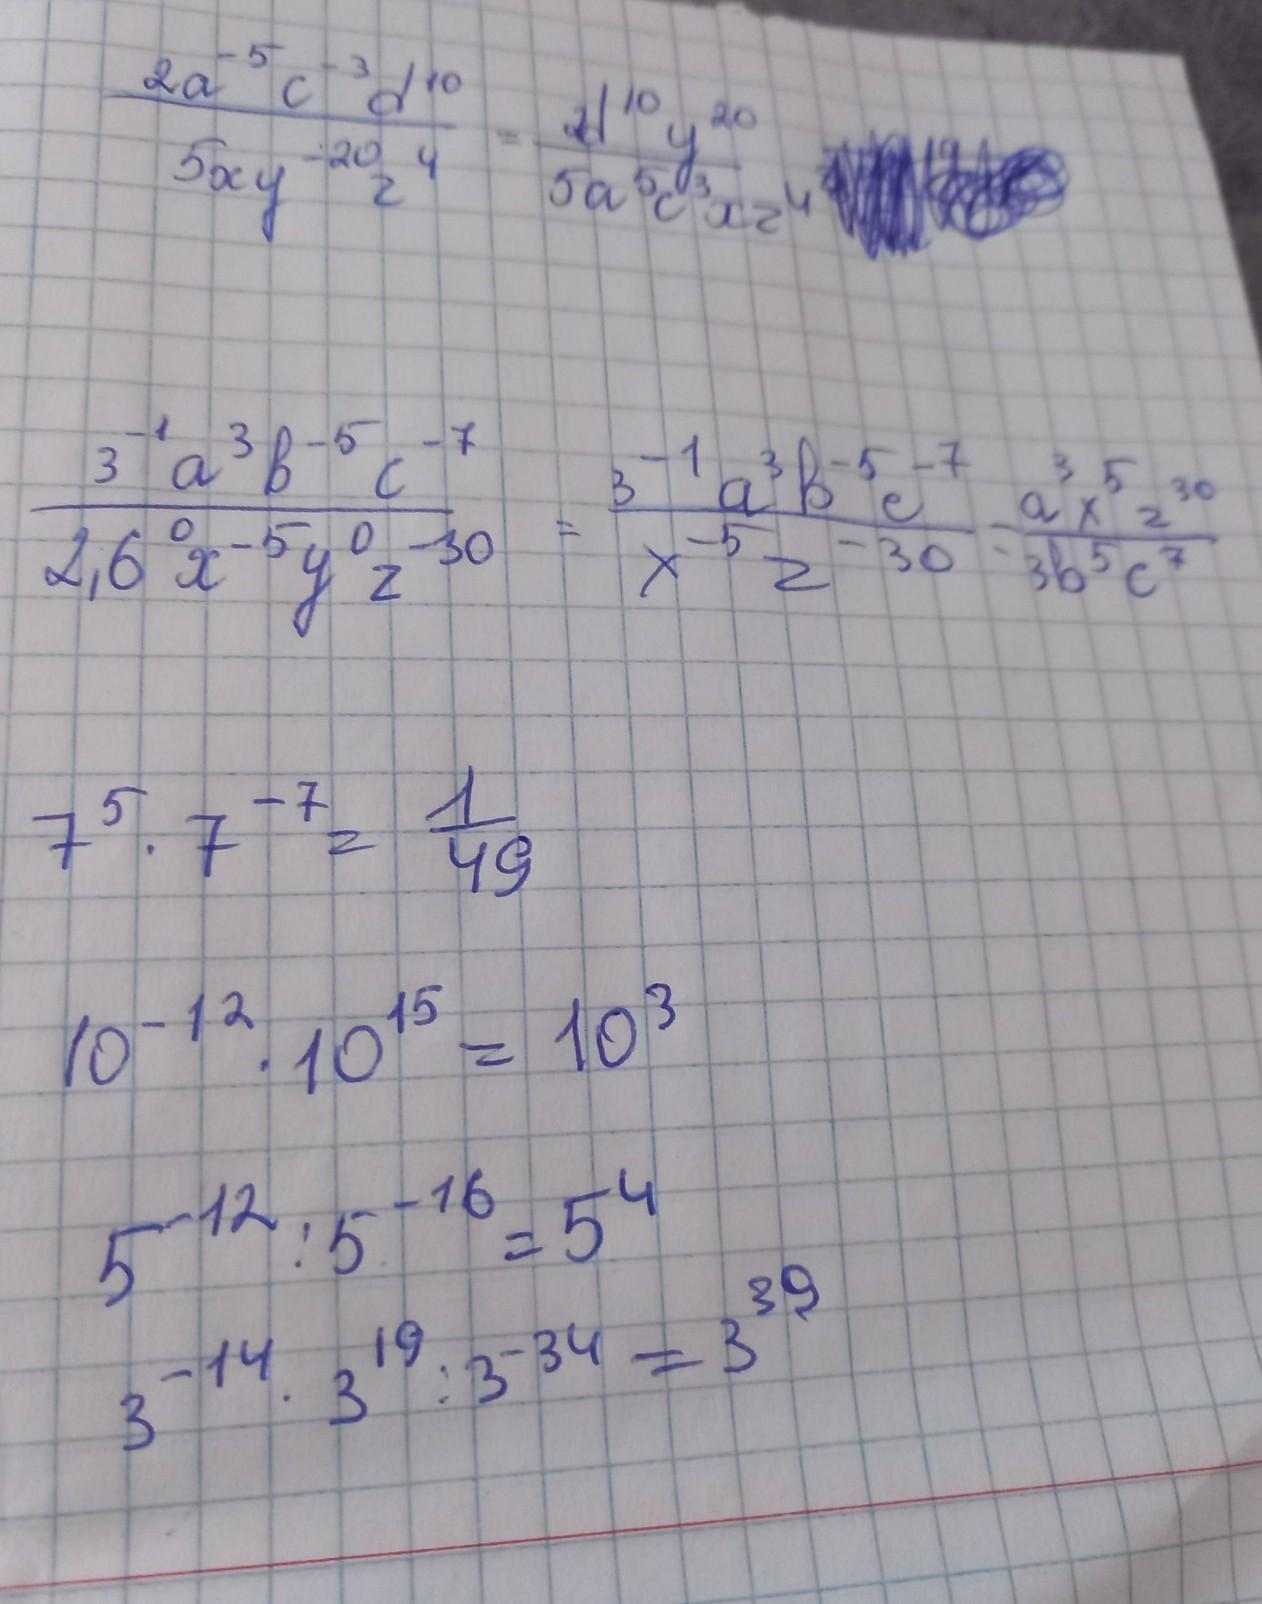 2a⁻⁵c⁻³d¹⁰ / 5xy⁻²⁰z⁴ = 2d¹⁰y²⁰ / 5a⁵c³xz⁴
3⁻¹a³b⁻⁵c⁻⁷ / 2,6⁰x⁻⁵y⁰z⁻³⁰ = 3⁻¹a³b⁻⁵c⁻⁷ / x⁻⁵z⁻³⁰ = a³x⁵z³⁰ / 3b⁵c⁷
7⁵ · 7⁻⁷ = 1/49
10⁻¹² · 10¹⁵ = 10³
5⁻¹² : 5⁻¹⁶ = 5⁴
3⁻¹⁴ · 3¹⁹ : 3⁻³⁴ = 3³⁹